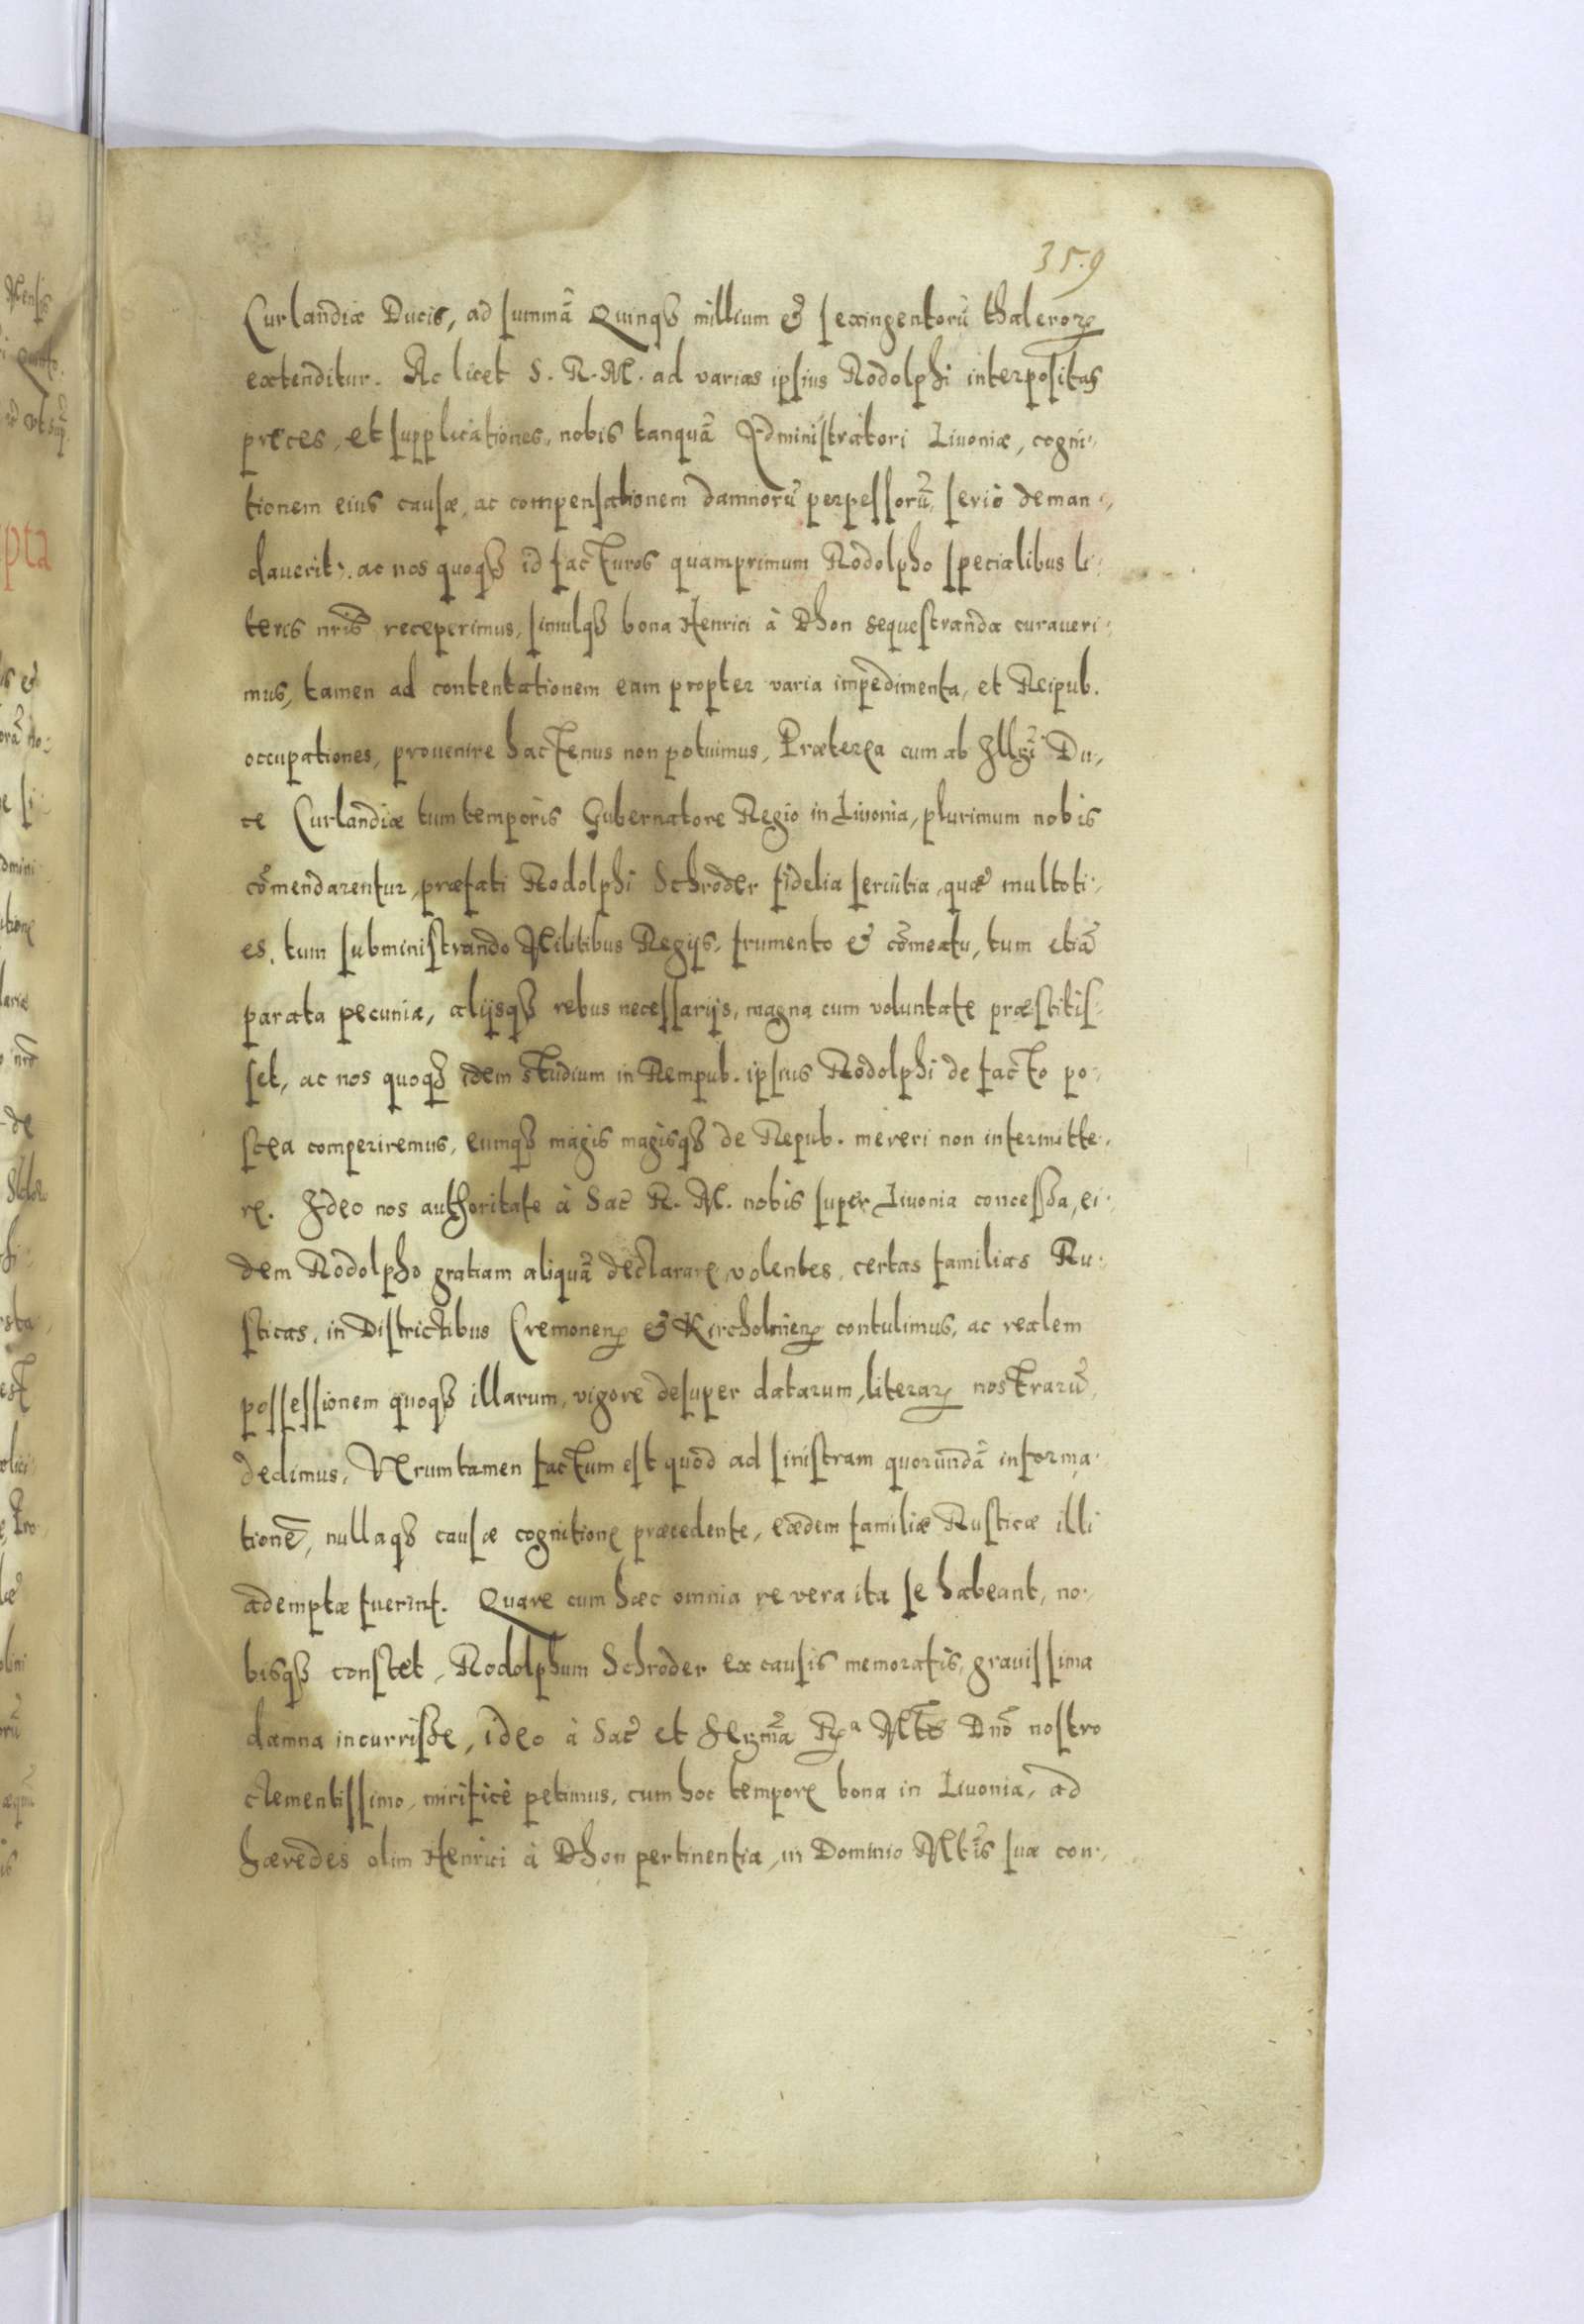 35.9
Curlandiæ Ducis, ad summã Quinqꝫ millium & sexingentorũ thalerorꝫ
extenditur. Ac licet S. R. M. ad varias ipsius Rodolphi interpositas
preces, et supplicationes, nobis tanquã Administratori Liuoniæ, cogni-
tionem eius causæ, ac compensationem damnorũ perpessorũ, serio deman-
dauerit, ac nos quoqꝫ id facturos quamprimum Rodolpho specialibus li-
teris nr̃is receperimus, simulqꝫ bona Henrici à Dhon sequestranda curaueri-
mus, tamen ad contentationem eam propter varia impedimenta, et Reipub.
occupationes, prouenire hactenus non potuimus, Præterea cum ab Illr̃i Du-
ce Curlandiæ tum temporis Gubernatore Regio in Liuonia, plurimum nobis
cõmendarentur, præfati Rodolphi Schroder fidelia seruitia, quæ multoti-
es, tum subministrando Militibus Regijs, frumento & cõmeatu, tum etiã
parata pecunia, alijsqꝫ rebus necessarijs, magna cum voluntate præstitis-
set, ac nos quoqꝫ idem studium in Rempub. ipsius Rodolphi de facto po-
stea comperiremus, eumqꝫ magis magisqꝫ de Repub. mereri non intermitte-
re. Ideo nos authoritate à Sac̃ R. M. nobis super Liuonia concessa, ei-
dem Rodolpho gratiam aliquã declarare volentes, certas familias Ru-
sticas, in Districtibus Cremonenꝫ & Kircholmenꝫ contulimus, ac realem
possessionem quoqꝫ illarum, vigore desuper datarum, literarꝫ nostrarũ,
dedimus, Verumtamen factum est quod ad sinistram quorundã informa-
tionẽ, nullaqꝫ causæ cognitione præcedente, eædem familiæ Rusticæ illi
ademptæ fuerint. Quare cum hæc omnia re vera ita se habeant, no-
bisqꝫ constet, Rodolphum Schroder ex causis memoratis, grauissima
damna incurrisse, ideo à Sac̃ et Serm̃a Rᵃ Mt̃e Dnõ nostro
clementissimo, mirificè petimus, cum hoc tempore bona in Liuonia, ad
hæredes olim Henrici à Dhon pertinentia, in Dominio Mt̃is suæ con-